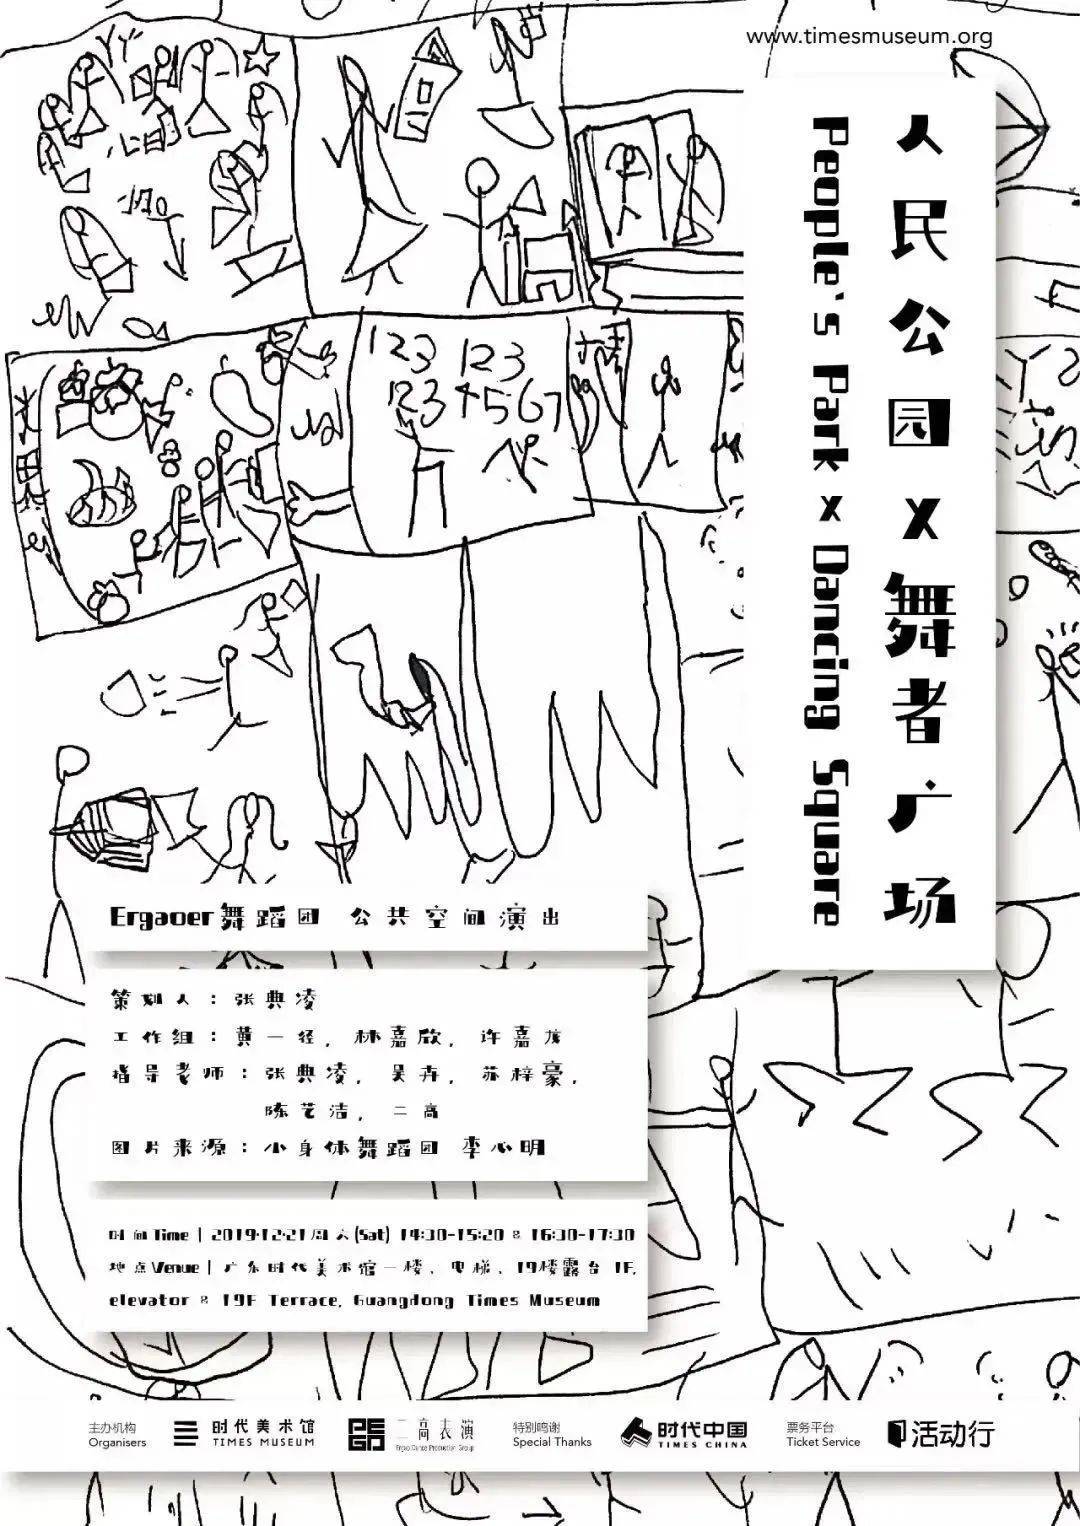 www.timesmuseum.org
人民公园 X 舞者广场
People's Park x Dancing Square
123 123
123 4567
Ergaoer舞蹈团 公共空间演出
策划人：张典凌
工作组：黄一径，林嘉欣，许嘉茂
指导老师：张典凌，吴卉，苏梓豪，
陈艺洁，二高
图片来源：小身体舞蹈团 李心明
时间Time | 2019.12.21周六(Sat) 14:30-15:20 & 16:30-17:30
地点Venue | 广东时代美术馆一楼、电梯、19楼露台 1F,
elevator & 19F Terrace, Guangdong Times Museum
主办机构
Organisers
时代美术馆
TIMES MUSEUM
二高表演
Ergao Dance Production Group
特别鸣谢
Special Thanks
时代中国
TIMES CHINA
票务平台
Ticket Service
活动行